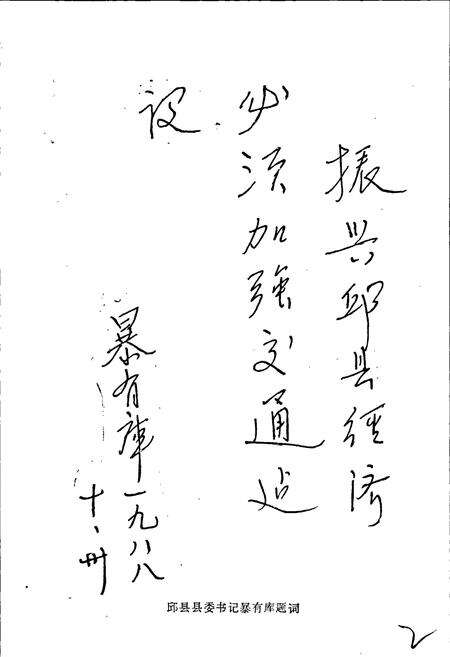 振兴邱县经济
必须加强交通建
设
暴有库一九八八
十、卅
邱县县委书记暴有库题词
2